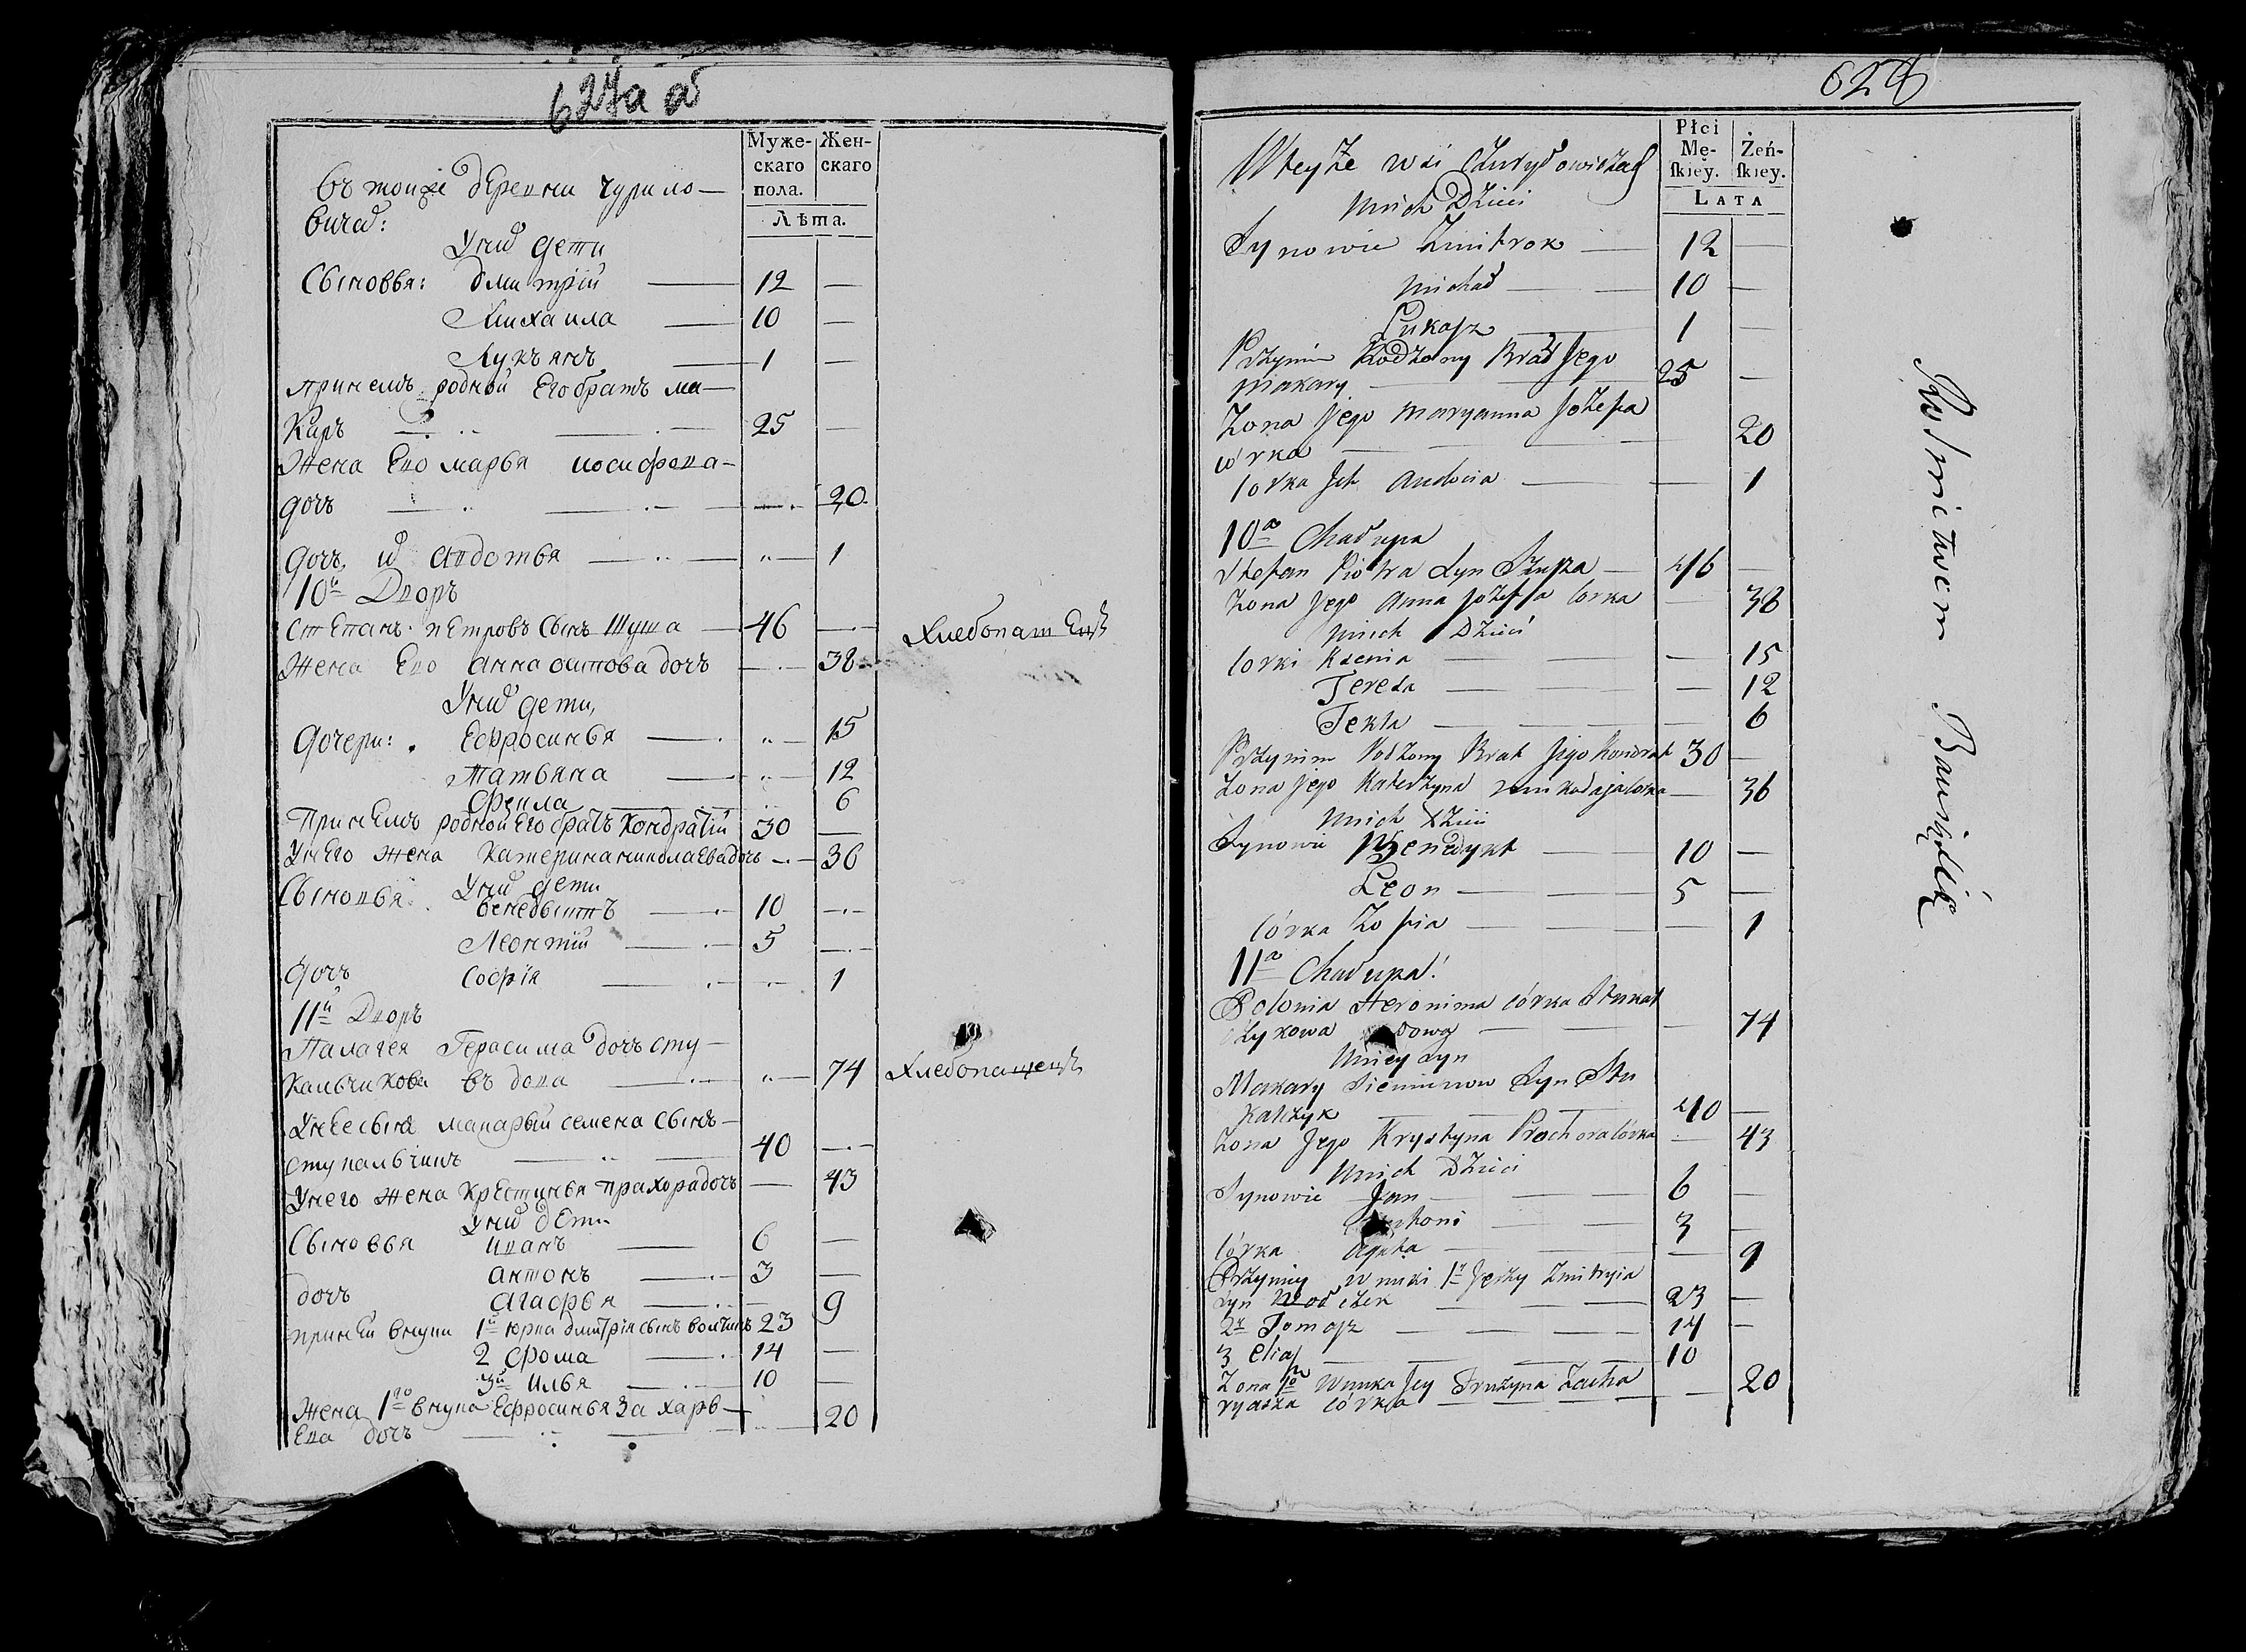 627а об
Муже- Жен-
скаго скаго
пола.
Лѣта.
въ тойже деревни Чурило-
вичах:
Уних дети
Сыновья: Дмитрій — 12 —
Михаила — 10 —
Лукъянъ — 1 —
Принемъ родной Его братъ Ма-
каръ — 25 —
Жена Его Марья иосифова
дочь — 20
дочь их Авдотья — 1
10й Дворъ
Степанъ Петровъ Сынъ Шуша — 46 — Хлебопашецъ
Жена Его Анна оситова дочъ — 38
Уних дети,
дочери: Ефросинья — 15
Татьяна — 12
Фекла — 6
Принемъ родной Его братъ Кондратій 30 —
Унего жена Катерина николаева дочъ — 36
Уних дети
Сыновья Бенедыктъ — 10 —
Леонтій — 5 —
дочъ Софія — 1
11й Дворъ
Палагея Герасима дочъ Сту-
кальчикова въдова — 74 Хлебопащецъ
Унее сынъ макарый семена Сынъ
стукальчикъ — 40 —
Унего жена Крестинья прахора дочъ — 43
Уних дети
Сыновья иванъ — 6 —
антонъ — 3 —
дочъ Агафья — 9
приней внуки 1й юрка дмитрія сынъ волчикъ 23
2 фома — 14 —
3й илья — 10 —
Жена 1го внука Ефросинья Захарь-
Ева дочъ — 20
628
Płci
Mę- Żeń-
skiey. skiey.
LATA
Wteyże wsi Czuryłowiczach
Unich Dzieci
Synowie Zmitrok — 12 —
Michał — 10 —
Łukasz — 1 —
Przynim Rodzony Brat Jego
Makary — 25 —
Zona Jego Maryanna Jozefa
córka — 20
Corka Ich Audocia — 1
10a Chałupa
Stefan Piotra Syn Szusza — 46 —
Zona Jego Anna Jozefa Corka — 38
Unich Dzieci
Corki Ksenia — 15
Teresa — 12
Tekla — 6
Przynim Rodzony Brat Jego Kondrat 30 —
Zona Jego Katerzyna Mikołaja Corka — 36
Unich Dzieci
Synowie Benedykt — 10 —
Leon — 5 —
Córka Zofia — 1
11a Chałupa
Polonia Heronima córka Stukal
czykowa wdowa — 74
Uniey Syn
Makary Siemionow Syn Stu
kalczyk — 40 —
Zona Jego Krystyna Prochora Córka — 43
Unich Dzieci
Synowie Jan — 6 —
Antoni — 3 —
Córka Agata — 9
Przyniey wnuki 1y Jerzy Zmitryia
Syn Wołczek — 23 —
2y Tomasz — 14 —
3 Eliasz — 10
Zona 1o Wnuka Jey Pruzyna Zacha
ryasza córka — 20